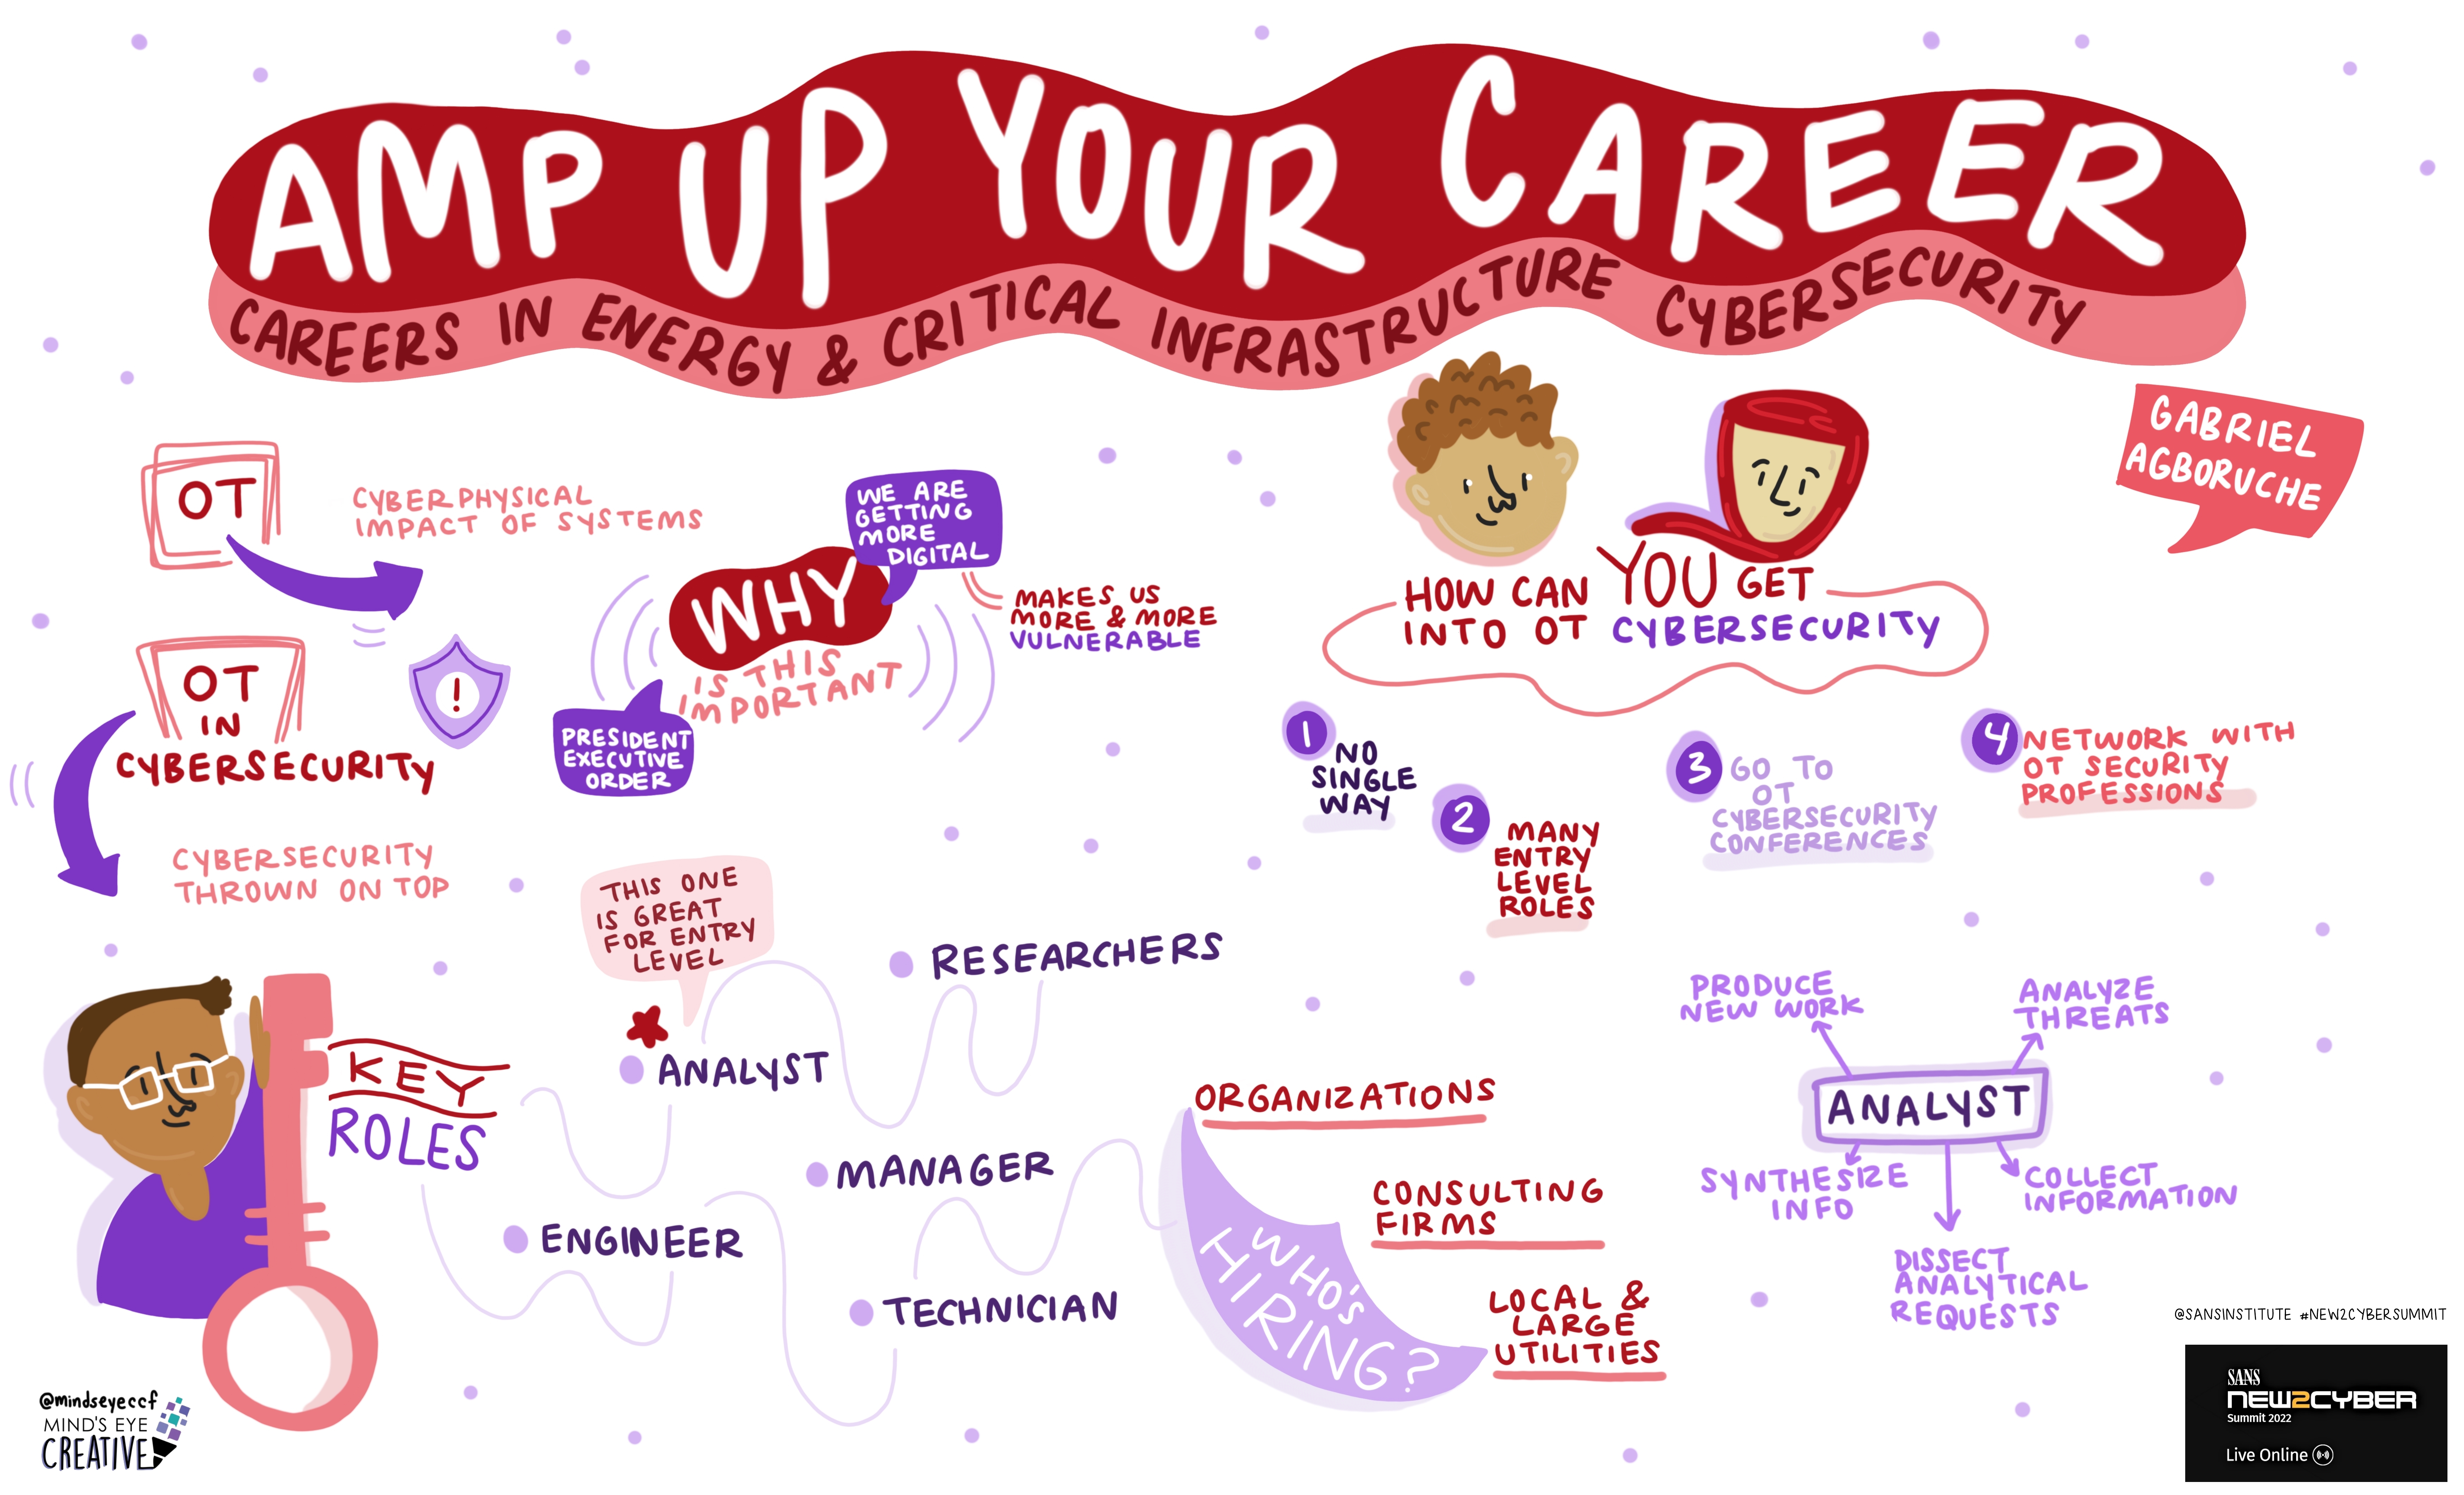 AMP UP YOUR CAREER
CAREERS IN ENERGY & CRITICAL INFRASTRUCTURE CYBERSECURITY
GABRIEL
AGBORUCHE
OT
CYBERPHYSICAL
IMPACT OF SYSTEMS
OT
IN
CYBERSECURITY
!
CYBERSECURITY
THROWN ON TOP
WHY
IS THIS
IMPORTANT
WE ARE
GETTING
MORE
DIGITAL
MAKES US
MORE & MORE
VULNERABLE
PRESIDENT
EXECUTIVE
ORDER
HOW CAN YOU GET
INTO OT CYBERSECURITY
1
NO
SINGLE
WAY
2
MANY
ENTRY
LEVEL
ROLES
3
GO TO
OT
CYBERSECURITY
CONFERENCES
4
NETWORK WITH
OT SECURITY
PROFESSIONS
KEY
ROLES
THIS ONE
IS GREAT
FOR ENTRY
LEVEL
ANALYST
RESEARCHERS
MANAGER
ENGINEER
TECHNICIAN
WHO'S
HIRING?
ORGANIZATIONS
CONSULTING
FIRMS
LOCAL &
LARGE
UTILITIES
ANALYST
PRODUCE
NEW WORK
ANALYZE
THREATS
SYNTHESIZE
INFO
COLLECT
INFORMATION
DISSECT
ANALYTICAL
REQUESTS
@mindseyeccf
MIND'S EYE
CREATIVE
@SANSINSTITUTE #NEW2CYBERSUMMIT
SANS
NEW2CYBER
Summit 2022
Live Online